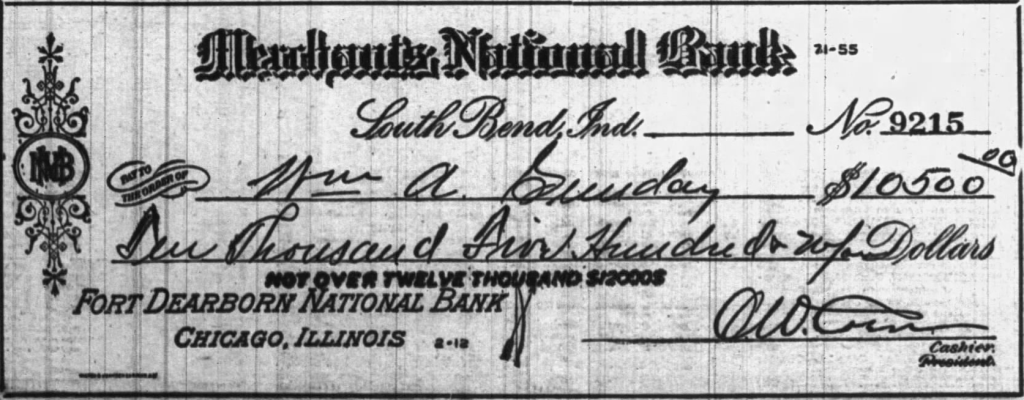 Merchants National Bank 21-55
South Bend, Ind. No. 9215
PAY TO THE ORDER OF Wm A. Sunday $10500 00
Ten Thousand Five Hundred & no/00 Dollars
NOT OVER TWELVE THOUSAND $12000$
FORT DEARBORN NATIONAL BANK
CHICAGO, ILLINOIS 2-12
Cashier.
President.